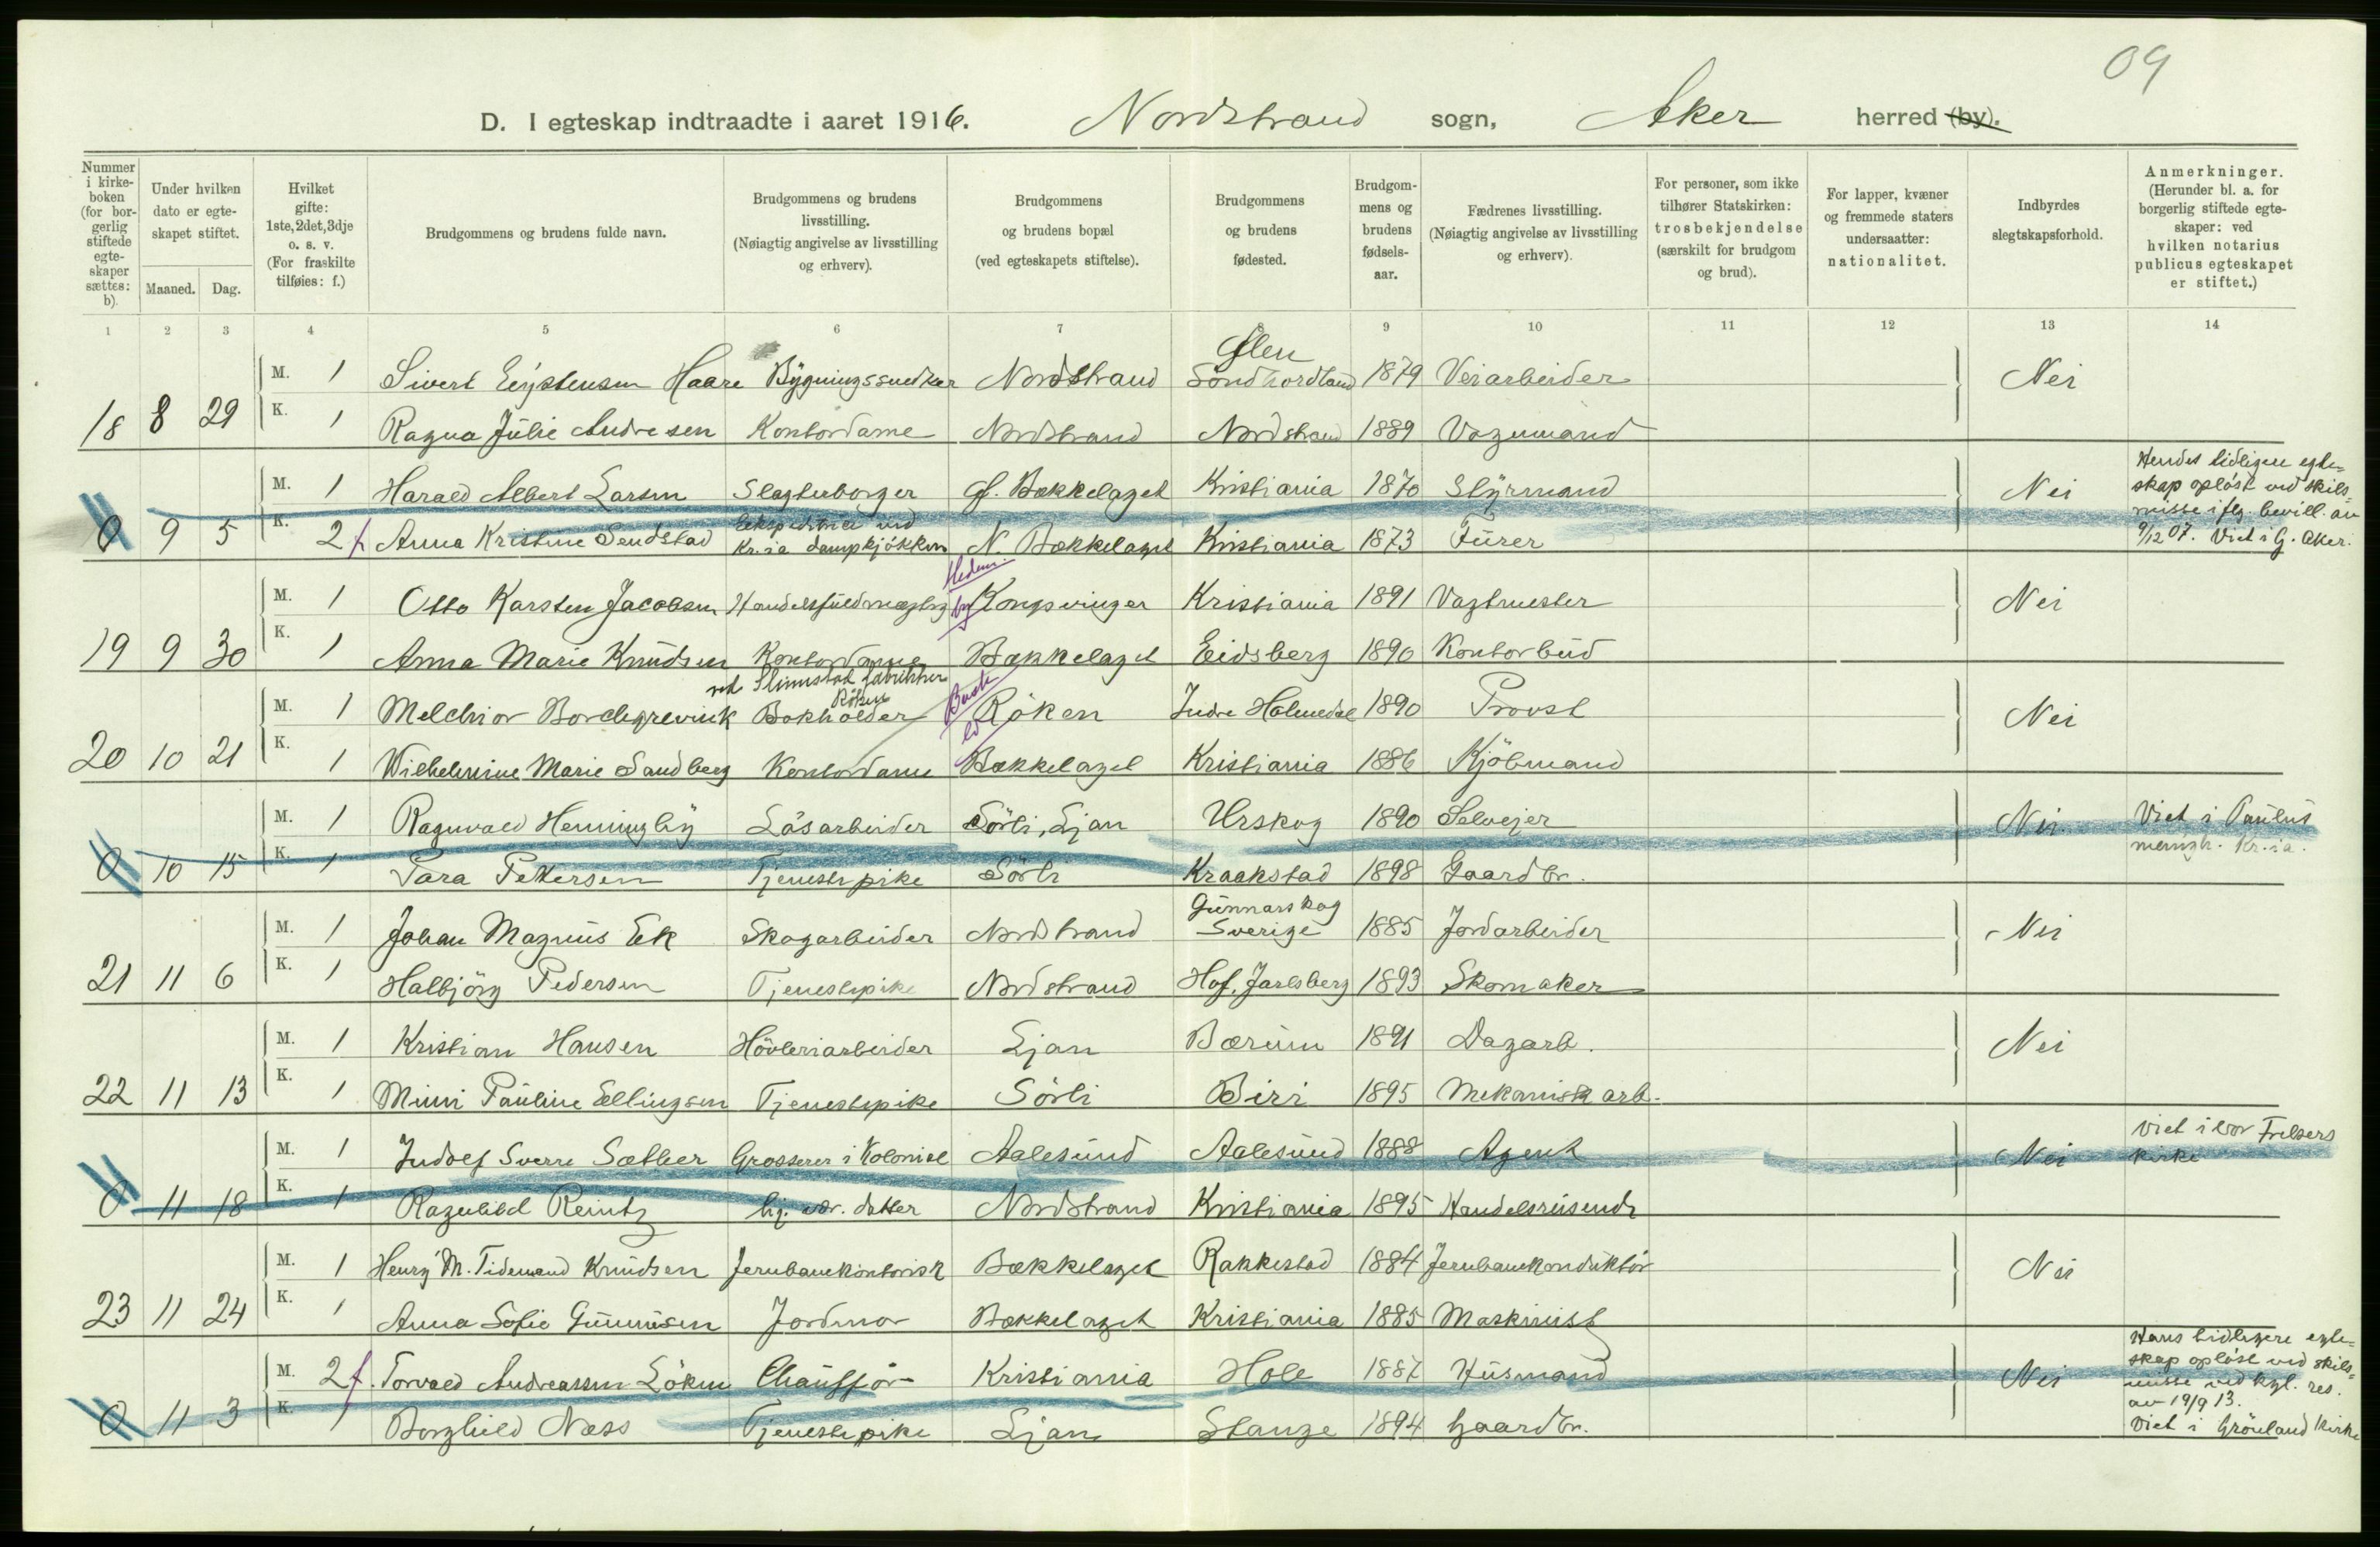 09
D. I egteskap indtraadte i aaret 1916. Nordstrand sogn, Aker herred (by).
Nummer i kirke-boken (for bor-gerlig stiftede egte-skaper sættes: b).
Under hvilken dato er egte-skapet stiftet.
Maaned. Dag.
Hvilket gifte: 1ste, 2det, 3dje o. s. v. (For fraskilte tilføies: f.)
Brudgommens og brudens fulde navn.
Brudgommens og brudens livsstilling. (Nøiagtig angivelse av livsstilling og erhverv).
Brudgommens og brudens bopæl (ved egteskapets stiftelse).
Brudgommens og brudens fødested.
Brudgom-mens og brudens fødsels-aar.
Fædrenes livsstilling. (Nøiagtig angivelse av livsstilling og erhverv).
For personer, som ikke tilhører Statskirken: trosbekjendelse (særskilt for brudgom og brud).
For lapper, kvæner og fremmede staters undersaatter: nationalitet.
Indbyrdes slegtskapsforhold.
Anmerkninger. (Herunder bl. a. for borgerlig stiftede egte-skaper: ved hvilken notarius publicus egteskapet er stiftet.)
1 2 3 4 5 6 7 8 9 10 11 12 13 14
M. 1 Sivert Eystensen Haare Bygningssnedker Nordstrand Ølen Söndhordland 1879 Veiarbeider Nei
18 8 29 K. 1 Ragna Julie Andresen Kontordame Nordstrand Nordstrand 1889 Vognmand
M. 1 Harald Albert Larsen Slagterborger Gl. Bækkelaget Kristiania 1870 Styrmand Nei
Hendes tidligere egte-
skap opløst ved skils-
misse iflg. bevill. av
9/12 07. Viet i G. Aker.
0 9 5 K. 2 f Anna Kristine Sendstad Ekspeditrice ved
Kr.ia dampkjøkken N. Bækkelaget Kristiania 1873 Furer
Hedem.
by
M. 1 Otto Karsten Jacobsen Handelsfuldmægtig Kongsvinger Kristiania 1891 Vagtmester Nei
19 9 30 K. 1 Anna Marie Knudsen Kontordame Bækkelaget Eidsberg 1890 Kontorbud
ved Slimmestad fabrikker
Röken
Busk
ld
M. 1 Melchior Borchgrevink Bokholder Röken Indre Holmedal 1890 Provst Nei
20 10 21 K. 1 Wilhelmine Marie Sandberg Kontordame Bækkelaget Kristiania 1886 Kjöbmand
M. 1 Ragnvald Henningby Løsarbeider Sörli, Ljan Urskog 1890 Selveier Nei
Viet i Paulus
menigh. Kr.ia.
0 10 15 K. 1 Tara Pettersen Tjenestepike Sörli Kraakstad 1898 Gaardbr.
M. 1 Johan Magnus Ek Skogarbeider Nordstrand Gunnarskog
Sverige 1885 Jordarbeider Nei
21 11 6 K. 1 Halbjörg Pedersen Tjenestepike Nordstrand Hof, Jarlsberg 1893 Skomaker
M. 1 Kristian Hansen Hövleriarbeider Ljan Bærum 1891 Dagarb. Nei
22 11 13 K. 1 Mimi Pauline Ellingsen Tjenestepike Sörli Biri 1895 Mekanisk arb.
M. 1 Indolf Sverre Sætter Grosserer i Kolonial Aalesund Aalesund 1888 Agent Nei
Viet i Vor Frelsers
kirke
0 11 18 K. 1 Ragnhild Reintz hj. vær. datter Nordstrand Kristiania 1895 Handelsreisende
M. 1 Henry M. Tidemand Knudsen Jernbanekontorist Bækkelaget Rakkestad 1884 Jernbanekonduktör Nei
23 11 24 K. 1 Anna Sofie Gunnusen Jordmor Bækkelaget Kristiania 1885 Maskinist
M. 2 f. Torvald Andreassen Löken Chaufför Kristiania Hole 1887 Husmand Nei
Hans tidligere egte-
skap opløst ved skils-
misse ved kgl. res.
av 19/9 13.
Viet i Grönland Kirke
0 11 3 K. 1 Borghild Næss Tjenestepike Ljan Stange 1894 Gaardbr.